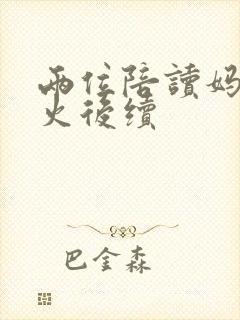 兩位陪讀妈
火後續
巴金森